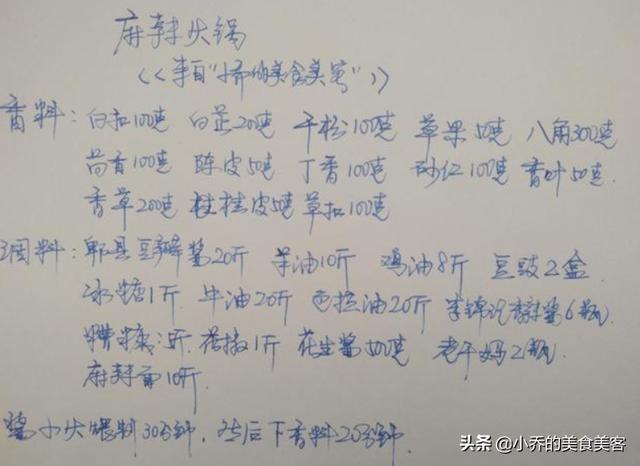 麻辣火锅
<<来自"小乔的美食美客">>
香料：白扣100克 白芷20克 干松100克 草果50克 八角300克
茴香100克 陈皮50克 丁香100克 砂仁100克 香叶50克
香草200克 桂皮50克 草扣100克
调料：郫县豆瓣酱20斤 羊油10斤 鸡油8斤 豆豉2盒
冰糖1斤 牛油20斤 色拉油20斤 李锦记 酱6瓶
糟辣 斤 1斤 花生酱500克 老干妈2瓶
麻辣 10斤
酱小火 料30分钟，然后下香料20分钟
头条 @小乔的美食美客